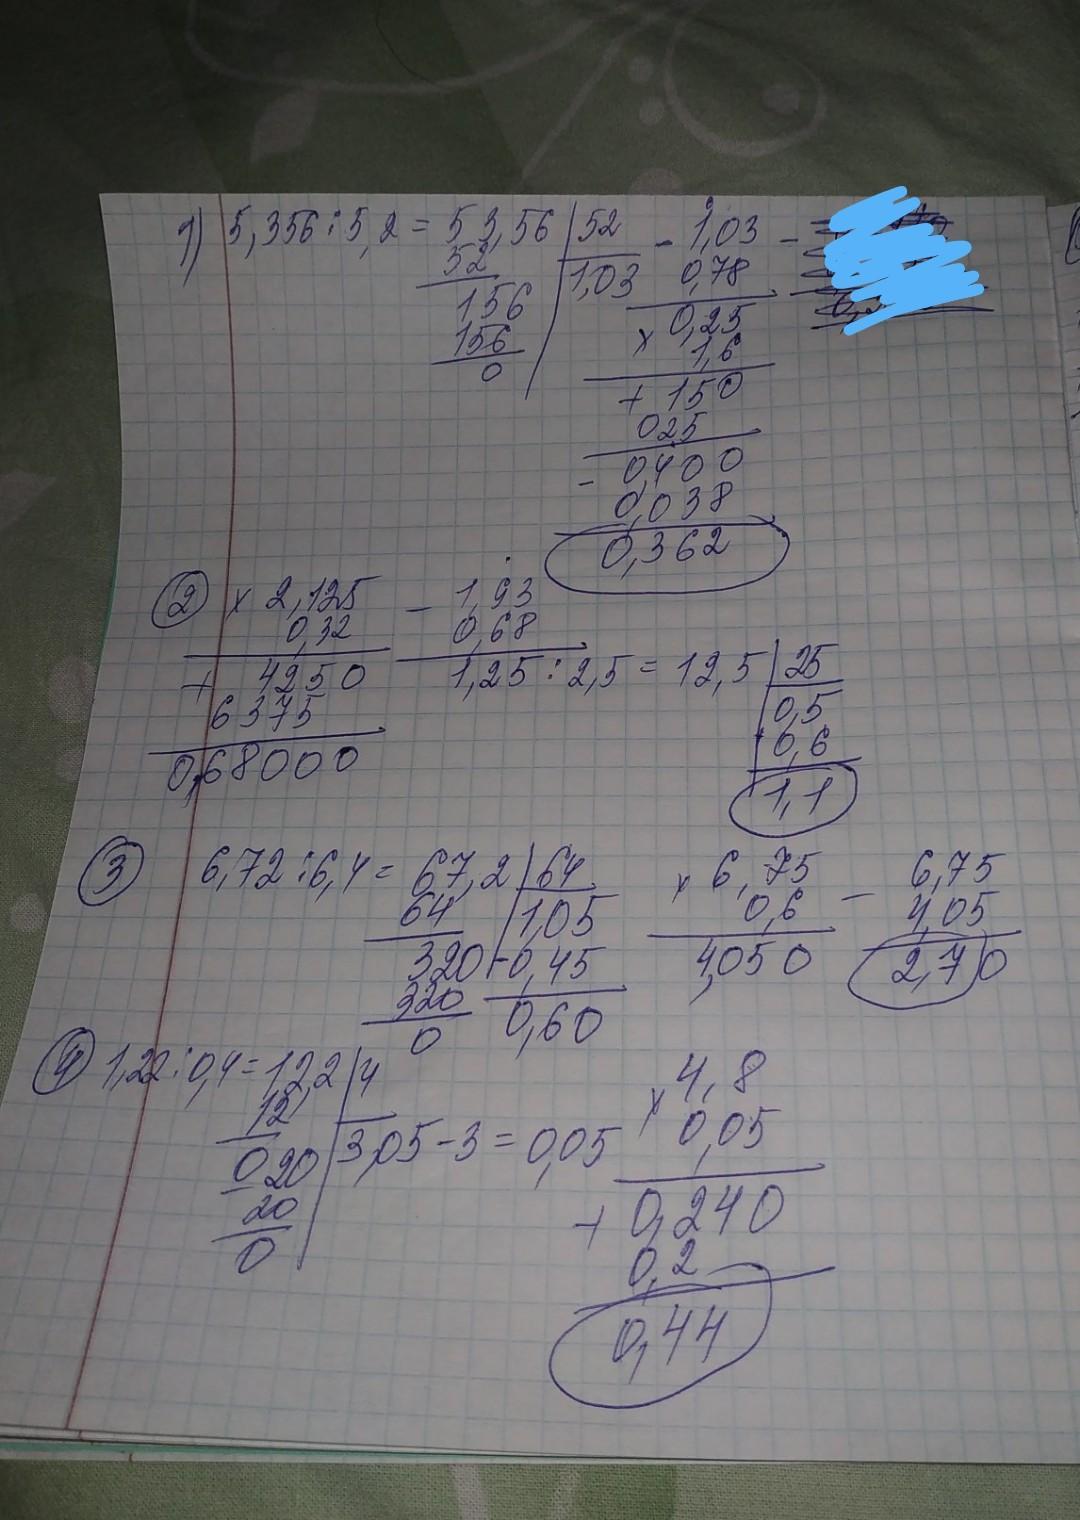 1) 5,356 : 5,2 = 53,56 | 52 - 1,03 -
52 1,03 0,78
156 0,25
156 x 1,6
0 + 150
025
- 0,400
0,038
0,362
2 x 2,125 - 1,93
0,32 0,68
+ 4250 1,25 : 2,5 = 12,5 | 25
6375 0,5
0,68000 0,6
1,1
3 6,72 : 6,4 = 67,2 | 64 x 6,75 - 6,75
64 1,05 0,6 4,05
320 - 0,45 4,050 2,70
320 0,60
0
4 1,22 : 0,4 = 12,2 | 4 x 4,8
12 3,05 - 3 = 0,05 0,05
020 + 0,240
20 0,2
0 0,44